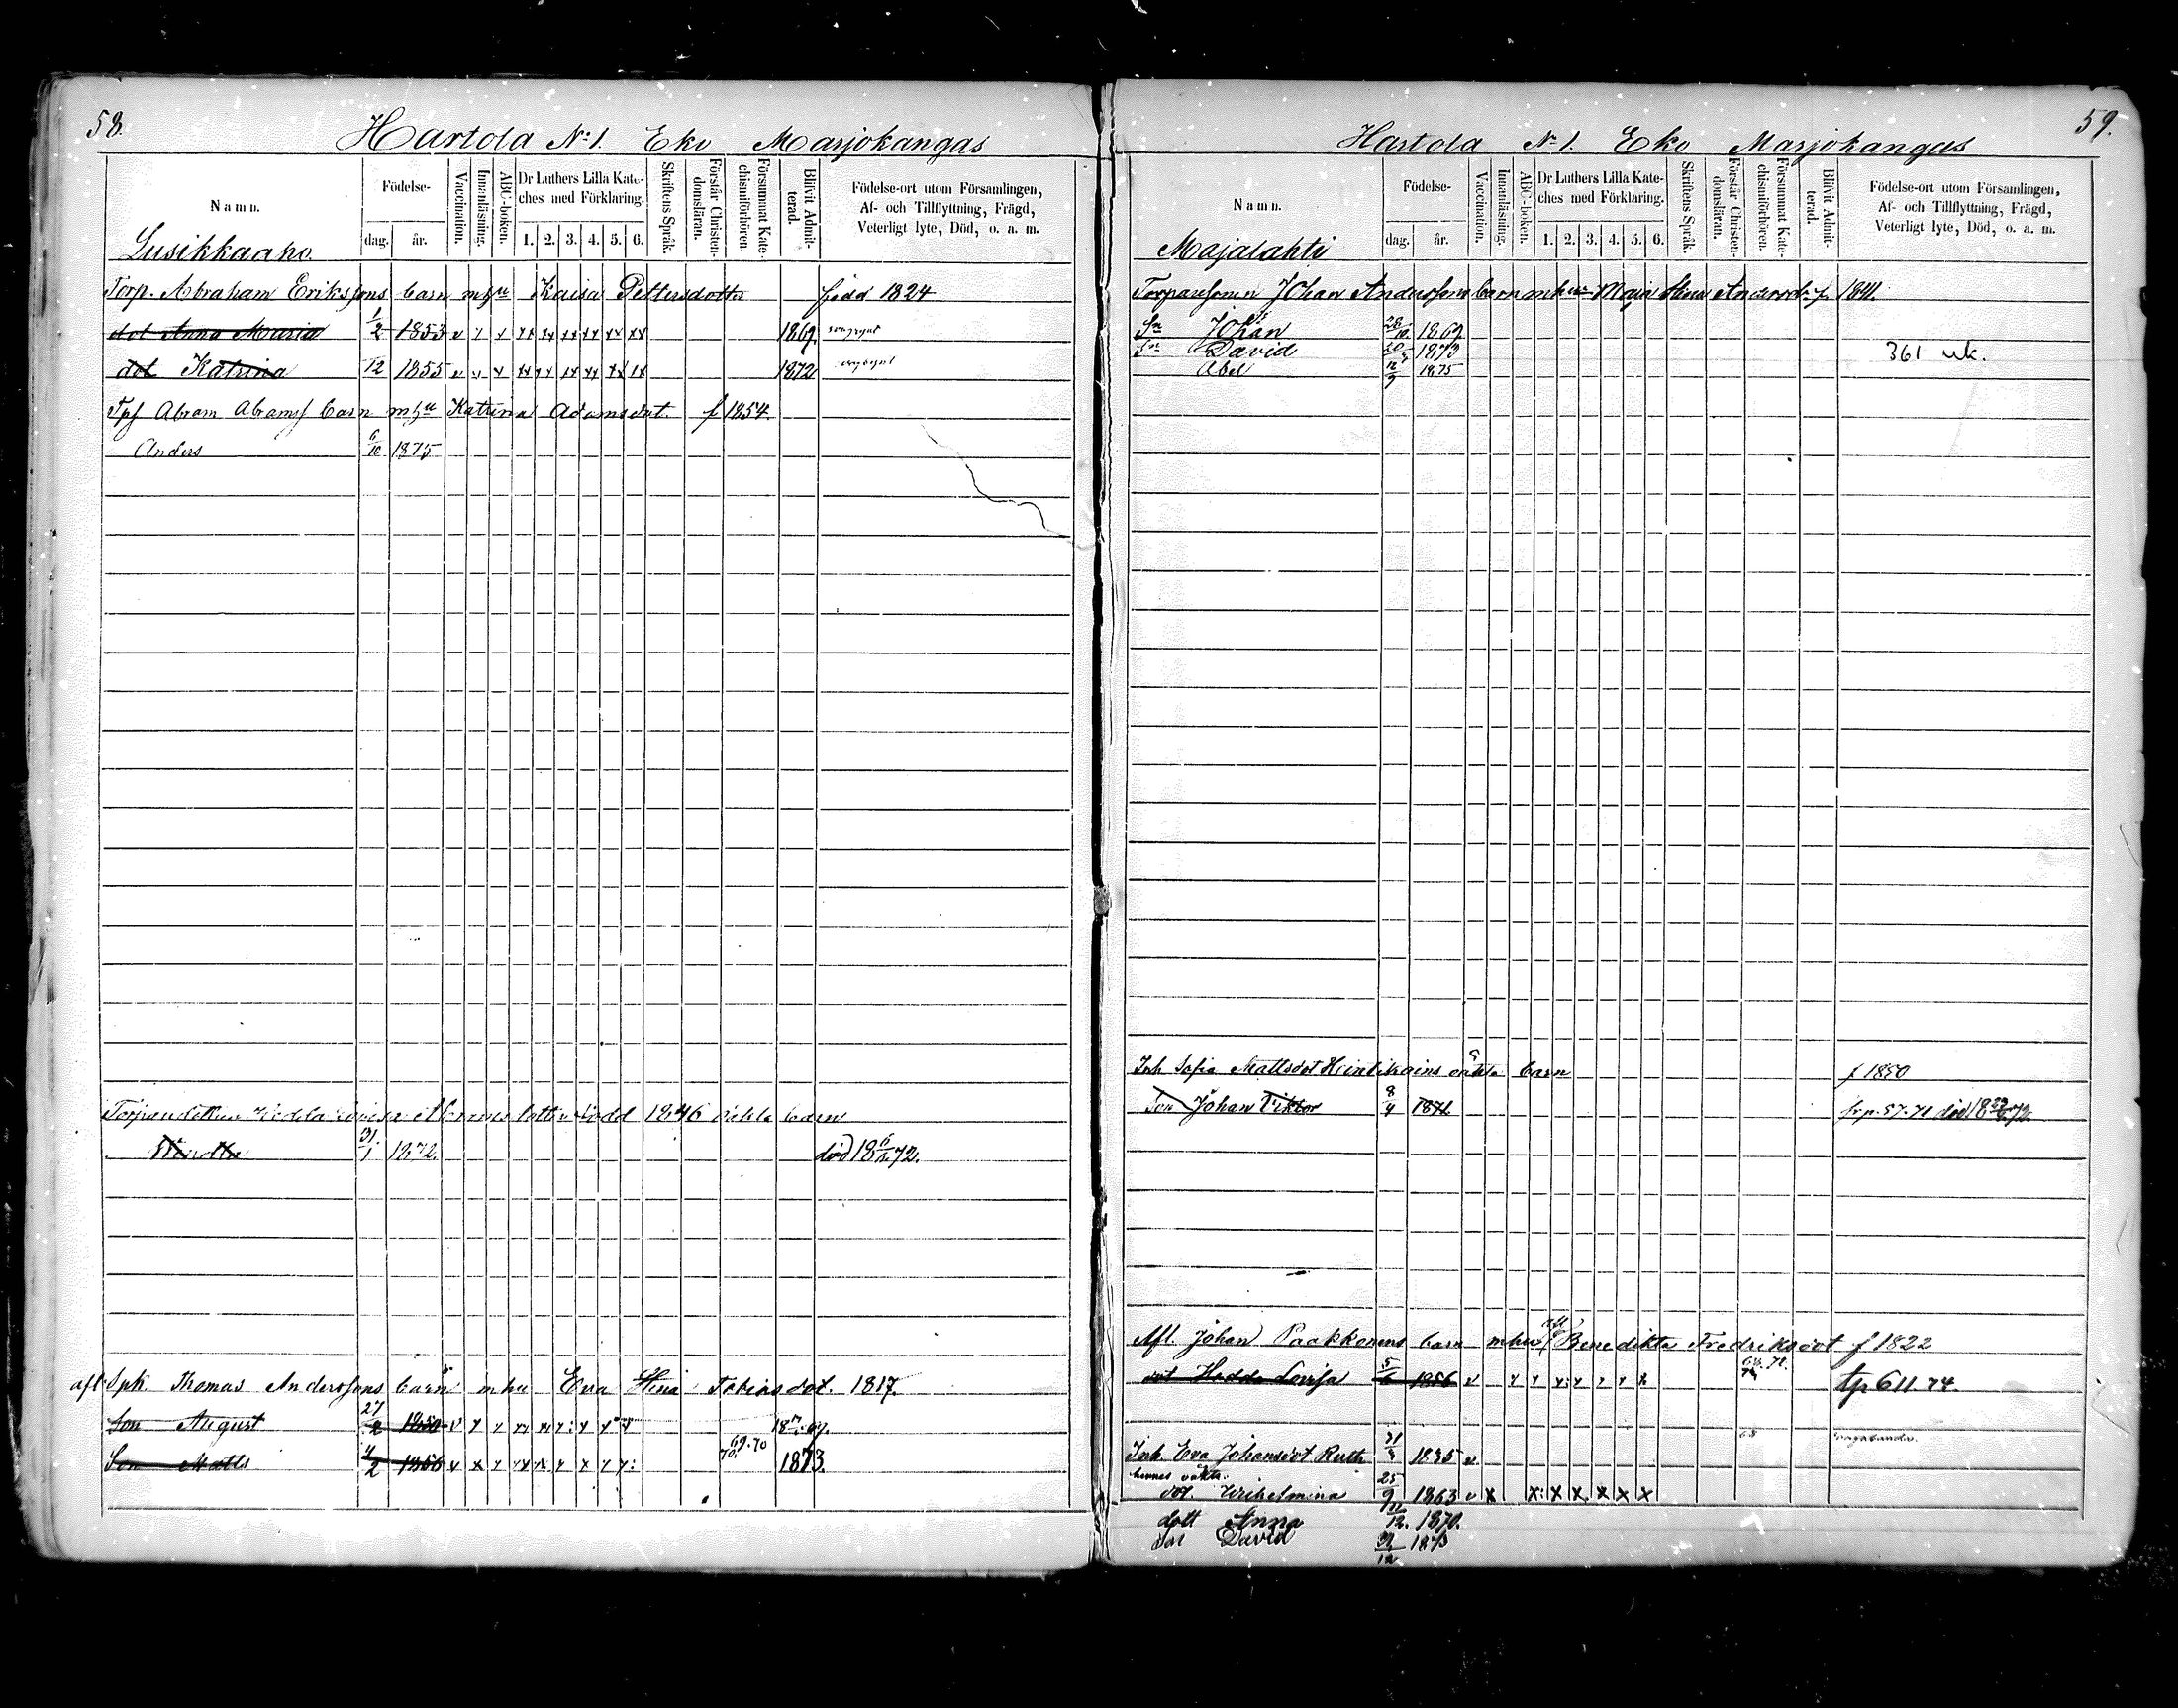 58.
Hartola No 1. Eko Marjokangas
Namn.
Födelse-
dag. år.
Vaccination.
Innanläsning.
ABC-boken.
Dr Luthers Lilla Kate-
ches med Förklaring.
1. 2. 3. 4. 5. 6.
Skriftens Språk.
Förstår Christen-
domsläran.
Försummat Kate-
chismiförhören
Blifvit Admit-
terad.
Födelse-ort utom Församlingen,
Af- och Tillflyttning, Frägd,
Veterligt lyte, Död, o. a. m.
Lusikkaaho
Torp. Abraham Erikssons barn mhu Kaisa Pettersdotter född 1824
dot Anna Maria 1/2 1853 1869.
dot Katrina 12 1855 1872
Tps Abram Abramss barn mhu Katrina Adamsdot. f 1854.
Anders 6/10 1875
född 1846 oäkta barn
31/1 1872. död 72.
afl Spk Thomas Anderssons barn mhu Eva Stina Tobiasdot. 1817.
Son August 27/2 1850 18 67.
Son Matts 4/2 1856 69.70 70. 1873.
59.
Hartola No 1. Eko Marjokangas
Namn.
Födelse-
dag. år.
Vaccination.
Innanläsning.
ABC-boken.
Dr Luthers Lilla Kate-
ches med Förklaring.
1. 2. 3. 4. 5. 6.
Skriftens Språk.
Förstår Christen-
domsläran.
Försummat Kate-
chismiförhören.
Blifvit Admit-
terad.
Födelse-ort utom Församlingen,
Af- och Tillflyttning, Frägd,
Veterligt lyte, Död, o. a. m.
Majalahti
Torparesonen Johan Anderssons barn mhu Maja Stina Andersd. f. 1841.
Sn Johan 28/10 1869
Sn David 20 1873 361 uk.
Abel 12/9 1875
Inh Sofia Mattsdot Hintikains oäkta barn f 1850
Son Johan Viktor 8/4 1871 fr p. 57. 71 död 72.
Afl. Johan Paakkonens barn mhu Benedikta Fredriksdot f 1822
dot Hedda Lovisa 5/6 1856 tp 611 74.
Inh Eva Johansdot Ruth 21 1835 68
hennes oäkta
dot. Wilhelmina 25/9 1863
dott Anna 12. 1870.
son David 12 1873